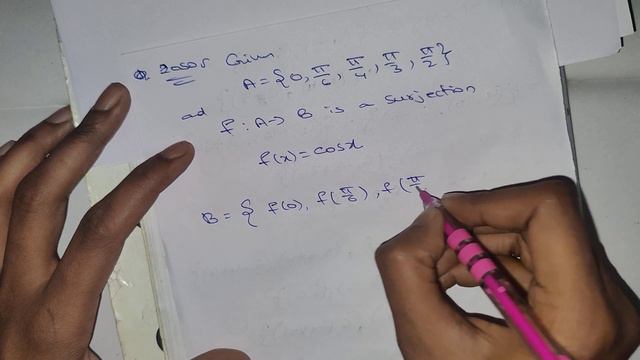 Given
A = {0, π/6, π/4, π/3, π/2}
ad
f : A → B is a surjection
f(x) = cosx
B = { f(0), f(π/6), f(π/